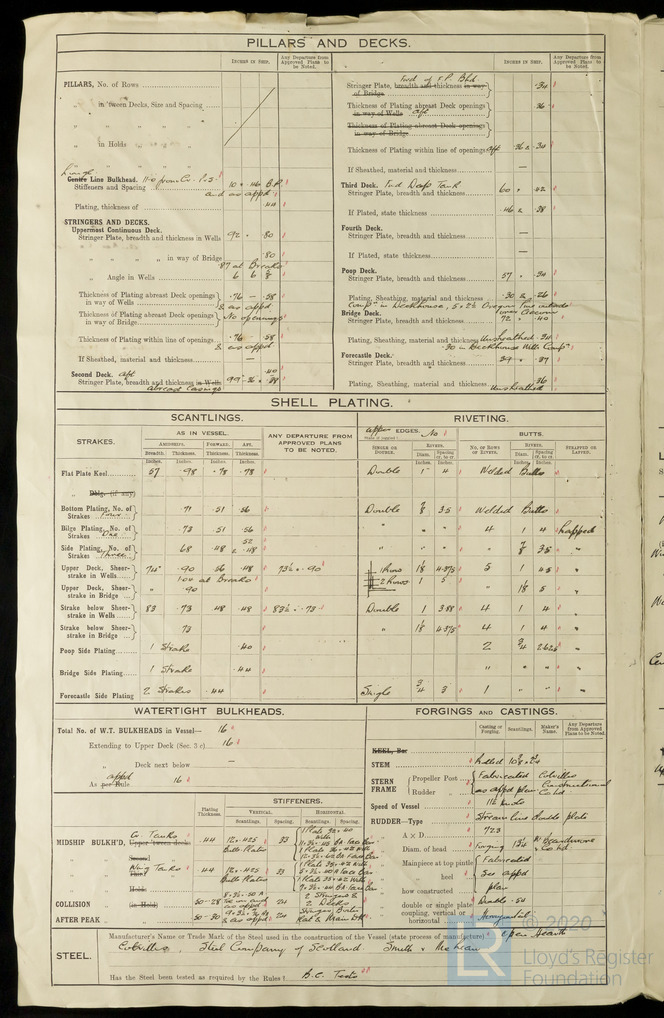 PILLARS AND DECKS.
INCHES IN SHIP.
Any Departure from Approved Plans to be Noted.
PILLARS, No. of Rows
„ in 'tween Decks, Size and Spacing
„ in Holds „ „
Centre Line Bulkhead.
Stiffeners and Spacing
and as appd
Plating, thickness of .44
STRINGERS AND DECKS.
Uppermost Continuous Deck.
Stringer Plate, breadth and thickness in Wells 92 × .80
„ „ „ „ in way of Bridge .80
.87 at Breaks
„ Angle in Wells 6 6
Thickness of Plating abreast Deck openings in way of Wells .76 - .58
& as appd
Thickness of Plating abreast Deck openings in way of Bridge No openings
Thickness of Plating within line of openings .76 .58
& as appd
If Sheathed, material and thickness —
Second Deck. aft
Stringer Plate, breadth and thickness in Wells
INCHES IN SHIP.
Any Departure from Approved Plans to be Noted.
Stringer Plate, breadth and thickness in way of Bridge .34
Thickness of Plating abreast Deck openings in way of Wells aft .36
Thickness of Plating abreast Deck openings in way of Bridge
Thickness of Plating within line of openings aft .36 & .34
If Sheathed, material and thickness —
Third Deck. Fwd Deep Tank
Stringer Plate, breadth and thickness 60 × .42
If Plated, state thickness .46 & .38
Fourth Deck.
Stringer Plate, breadth and thickness —
If Plated, state thickness —
Poop Deck.
Stringer Plate, breadth and thickness 57 × .34
Plating, Sheathing, material and thickness .30 & .26
Bridge Deck.
Stringer Plate, breadth and thickness 72 × .40
Plating, Sheathing, material and thickness Unsheathed .34
.30 in Deckhouse With Compn
Forecastle Deck.
Stringer Plate, breadth and thickness 39 × .37
Plating, Sheathing, material and thickness .36
Unsheathed
SHELL PLATING.
SCANTLINGS.
STRAKES.
AS IN VESSEL.
AMIDSHIPS. FORWARD. AFT.
Breadth. Thickness. Thickness. Thickness.
Inches. Inches. Inches. Inches.
ANY DEPARTURE FROM APPROVED PLANS TO BE NOTED.
Flat Plate Keel 57 .98 .78 .78
„ Dblg. (if any)
Bottom Plating, No. of Strakes Four .71 .51 .56
Bilge Plating, No. of Strakes One .73 .51 .56
Side Plating, No. of Strakes Three .68 .48 .52 & .48
Upper Deck, Sheerstrake in Wells 74" .90 .56 .48 73½ × .90
1.00 at Breaks
Upper Deck, Sheerstrake in Bridge „ .90
Strake below Sheerstrake in Wells 83 .73 .48 .48 83½ × .73
Strake below Sheerstrake in Bridge .73
Poop Side Plating 1 Strake .40
Bridge Side Plating 1 Strake .44
Forecastle Side Plating 2 Strakes .44
RIVETING.
EDGES. No
BUTTS.
SINGLE OR DOUBLE.
RIVETS.
Diam. Spacing cr. to cr.
No. of ROWS OF RIVETS.
RIVETS.
Diam. Spacing cr. to cr.
STRAPPED OR LAPPED.
Double 1" 4 Welded Butts
Double 7/8 3.5 Welded Butts
„ „ „ 4 1 4 Lapped
„ „ „ 4 7/8 3.5 „
1 Rows 1⅛ 4.375 5 1 4.5 „
2 Rows 1 5
1⅛ 5 „
Double 1 3.88 4 1 4 „
„ 1⅛ 4.375 4 1 4 „
2 3/4 2.625 „
„ „ „ „
Single 3/4 3 1 „ „ „
WATERTIGHT BULKHEADS.
Total No. of W.T. BULKHEADS in Vessel— 16
Extending to Upper Deck (Sec. 3 c) 16
„ Deck next below —
As per Rule appd 16
Plating Thickness.
STIFFENERS.
VERTICAL. HORIZONTAL.
Scantlings. Spacing. Scantlings. Spacing.
MIDSHIP BULKH'D, Upper 'tween decks .44 12 × .425 33
Bulb Plates
Second
Wing Tanks .44 12 × .425 33
Bulb Plates
Hold
COLLISION (in Hold) .50-.28 24
AFTER PEAK „ .50-.30 24
2 Stringers &
2 Decks
Flat & Main Dk
FORGINGS AND CASTINGS.
Casting or Forging. Scantlings. Maker's Name. Any Departure from Approved Plans to be Noted.
KEEL, Bar
STEM Rolled
STERN FRAME
Propeller Post
Rudder „
Fabricated Colvilles
as appd plan Constructional Co Ltd
Speed of Vessel 11½ knots
RUDDER—Type Streamline double plate
A × D 723
Diam. of head Forging 13¼ W Beardmore & Co Ltd
Mainpiece at top pintle Fabricated
„ heel See appd
how constructed plan
double or single plate Double .54
coupling, vertical or horizontal Horizontal
STEEL.
Manufacturer's Name or Trade Mark of the Steel used in the construction of the Vessel (state process of manufacture) Open Hearth
Colvilles, Steel Company of Scotland Smith & McLean
Has the Steel been tested as required by the Rules? B.C. Tests
© 2020
LR
Lloyd's Register
Foundation